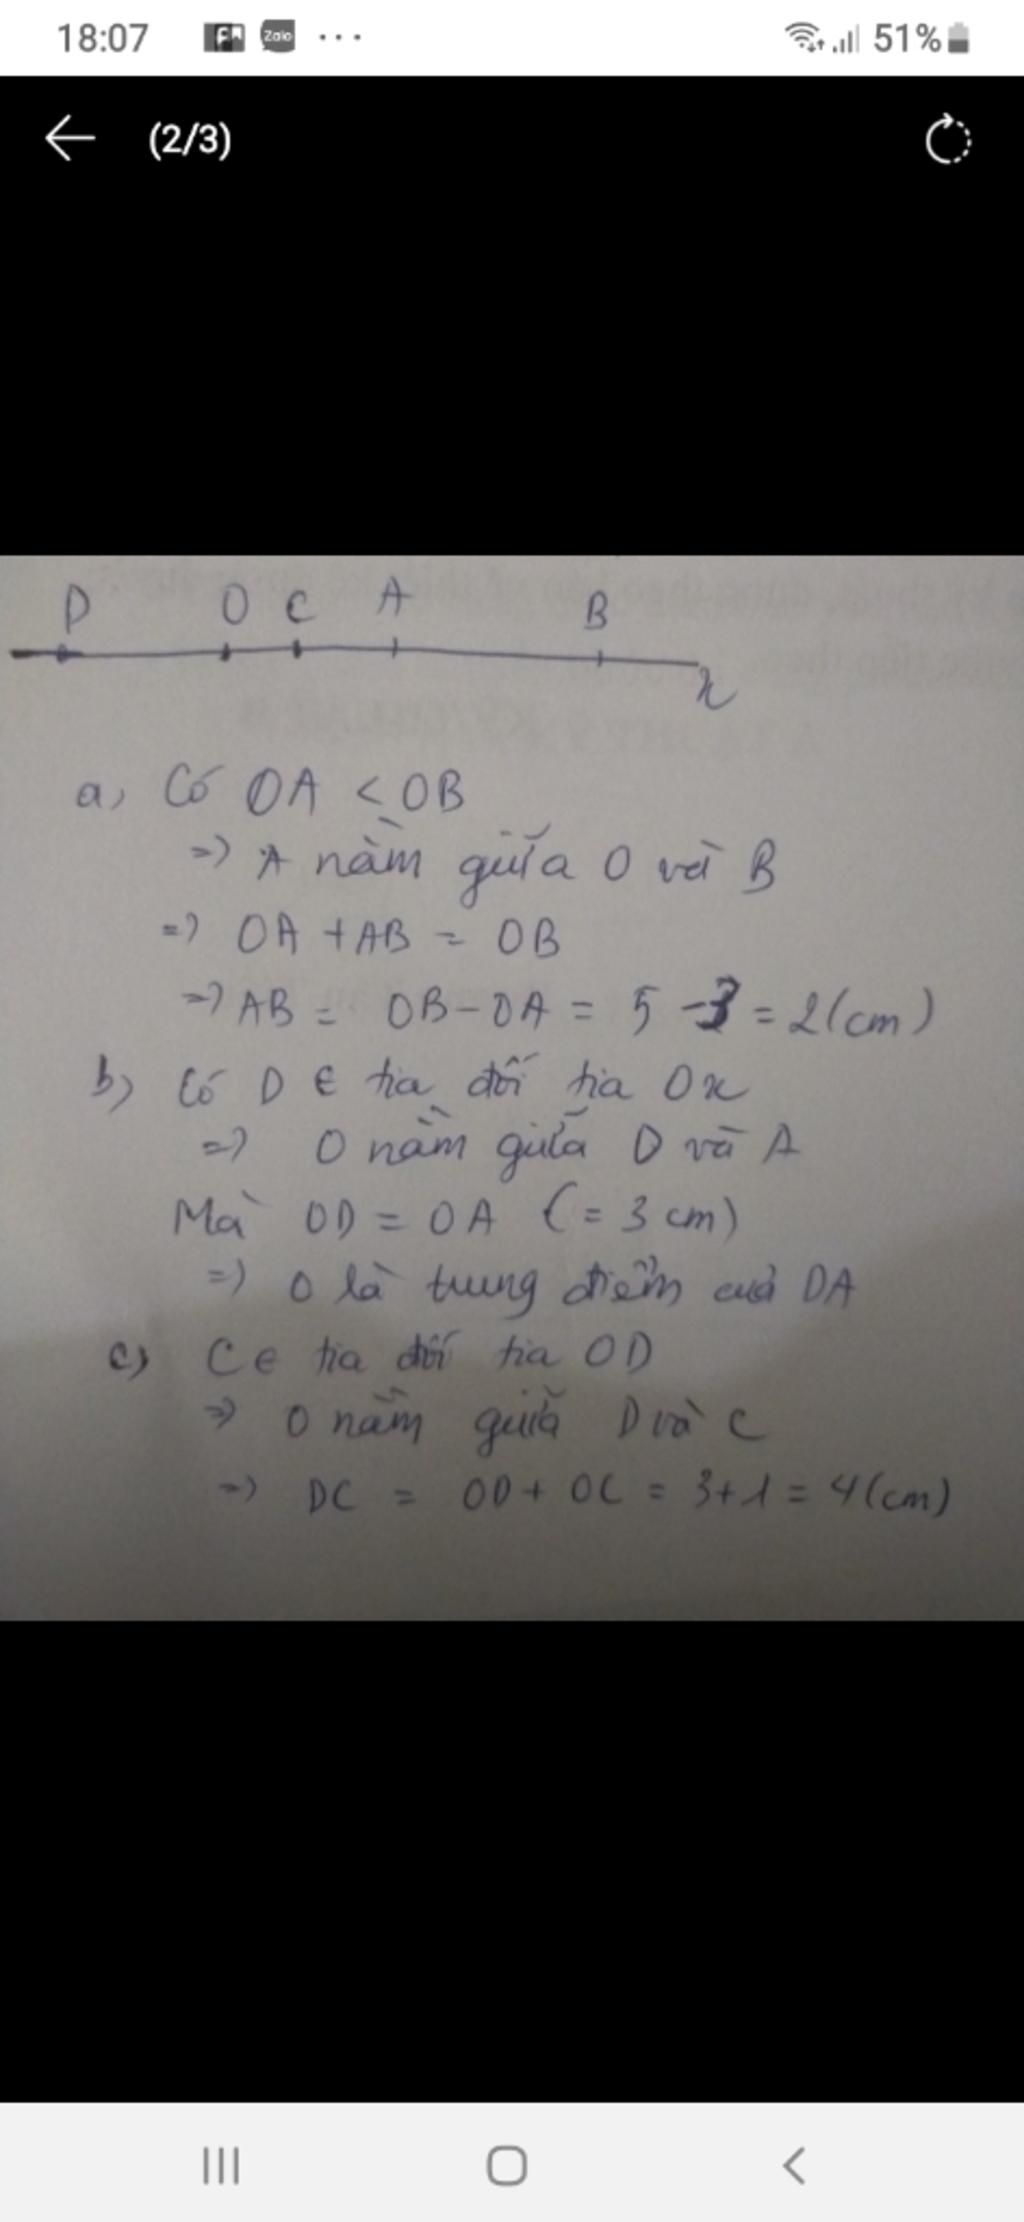 18:07 Zalo ... 51%
(2/3)
D O C A B
x
a, Có OA < OB
=> A nằm giữa O và B
=> OA + AB = OB
=> AB = OB - OA = 5 - 3 = 2 (cm)
b) Có D ∈ tia đối tia Ox
=> O nằm giữa D và A
Mà OD = OA (= 3 cm)
=> O là trung điểm của DA
c) C ∈ tia đối tia OD
=> O nằm giữa D và C
=> DC = OD + OC = 3 + 1 = 4 (cm)